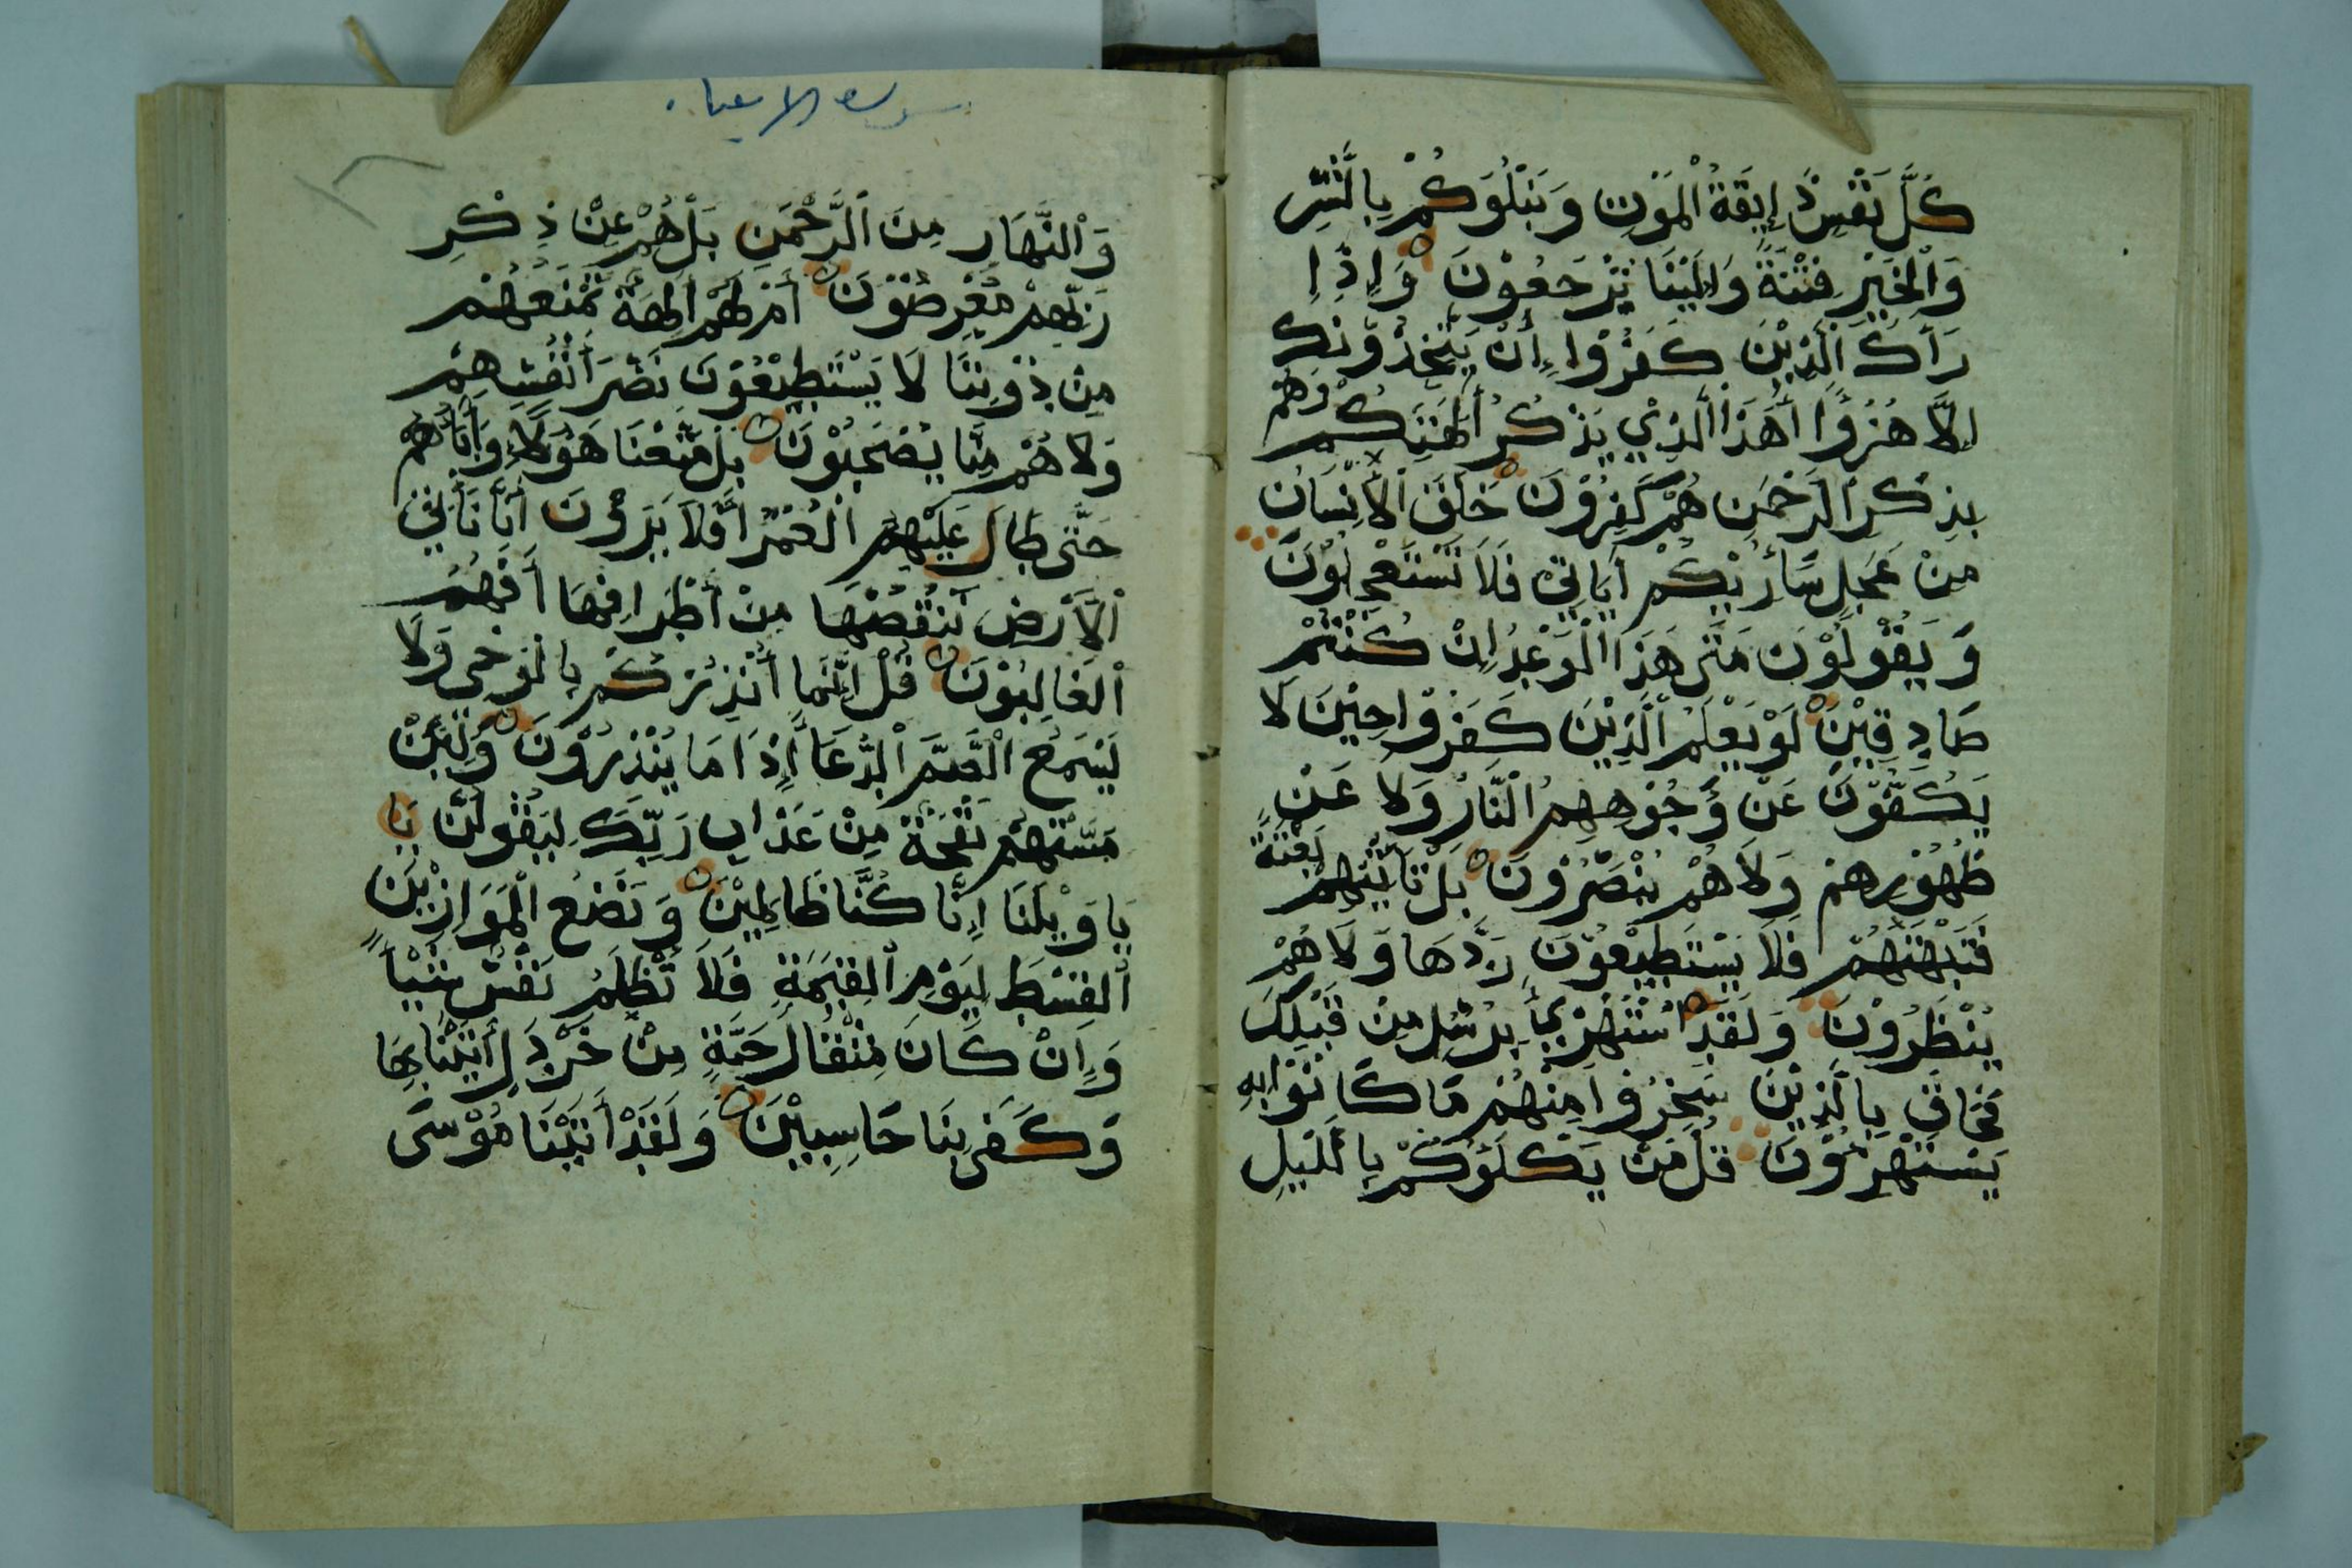 كُلُّ نَفْسٍ ذَإِيقَةُ الْمَوْتِ وَنَبْلُوَكُمْ بِالشَّرِّ
وَالْخَيْرِ فِتْنَةً وَإِلَيْنَا تُرْجَعُوْنَ وَإِذَا
رَأَىكَ الَّذِيْنَ كَفَرُوْا إِنْ يَتَّخِذُوْنَكَ
اِلَّا هُزُوًا أَهَذَا الَّذِيْ يَذْكُرُ أَلِهَتَكُمْ وَهُمْ
بِذِكْرِ الرَّحْمَنِ هُمْ كَفِرُوْنَ خَلَقَ الْأِنْسَانَ
مِنْ عَجَلٍ سَأُرِيْكُمْ أَيَاتِيْ فَلَا تَسْتَعْجِلُوْنَ
وَيَقُوْلُوْنَ مَتَى هَذَا الْوَعْدُ اِنْ كُنْتُمْ
صَادِقِيْنَ لَوْ يَعْلَمُ الَّذِيْنَ كَفَرُوْا حِيْنَ لَا
يَكُفُّوْنَ عَنْ وُجُوْهِهِمُ النَّارَ وَلَا عَنْ
ظُهُوْرِهِمْ وَلَا هُمْ يُنْصَرُوْنَ بَلْ تَأْتِيْهِمْ بَغْتَةً
فَتَبْهَتُهُمْ فَلَا يَسْتَطِيْعُوْنَ رَدَّهَا وَلَا هُمْ
يُنْظَرُوْنَ وَلَقَدِ اسْتُهْزِيئَ بِرُسُلٍ مِنْ قَبْلِكَ
فَحَاقَ بِالَّذِيْنَ سَخِرُوْا مِنْهُمْ مَا كَانُوْا بِهِ
يَسْتَهْزِءُوْنَ قُلْ مَنْ يَكْلَؤُكُمْ بِالَّيْلِ
سورة الانبياء
وَالنَّهَارِ مِنَ الرَّحْمَنِ بَلْ هُمْ عَنْ ذِكْرِ
رَبِّهِمْ مُعْرِضُوْنَ أَمْ لَهُمْ أَلِهَةٌ تَمْنَعُهُمْ
مِنْ دُوْنِنَا لَا يَسْتَطِيْعُوْنَ نَصْرَ أَنْفُسِهِمْ
وَلَا هُمْ مِنَّا يُصْحَبُوْنَ بَلْ مَتَّعْنَا هَؤُلَاءِ وَأَبَاءَهُمْ
حَتَّى طَالَ عَلَيْهِمُ الْعُمُرُ أَفَلَا يَرَوْنَ أَنَّا نَأْتِيْ
الْأَرْضَ نَنْقُصُهَا مِنْ أَطْرَافِهَا أَفَهُمُ
الْغَالِبُوْنَ قُلْ اِنَّمَا أُنْذِرُكُمْ بِالْوَحْيِ وَلَا
يَسْمَعُ الصُّمُّ الدُّعَاءَ إِذَا مَا يُنْذَرُوْنَ وَلَئِنْ
مَسَّتْهُمْ نَفْحَةٌ مِنْ عَذَابِ رَبِّكَ لَيَقُوْلُنَّ يَا
يَا وَيْلَنَا اِنَّا كُنَّا ظَالِمِيْنَ وَنَضَعُ الْمَوَازِيْنَ
الْقِسْطَ لِيَوْمِ الْقِيَمَةِ فَلَا تُظْلَمُ نَفْسٌ شَيْأً
وَإِنْ كَانَ مِثْقَالَ حَبَّةٍ مِنْ خَرْدَلٍ أَتَيْنَا بِهَا
وَكَفَى بِنَا حَاسِبِيْنَ وَلَقَدْ أَتَيْنَا مُوْسَى